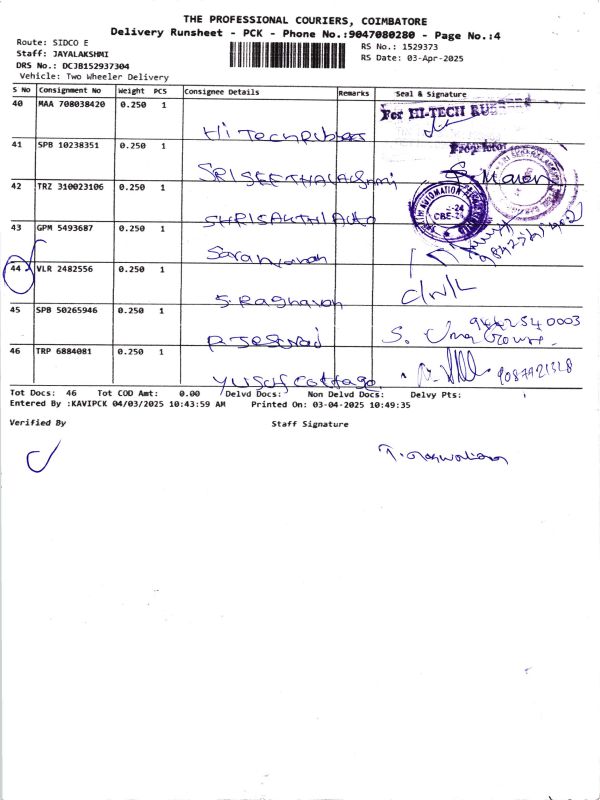 THE PROFESSIONAL COURIERS, COIMBATORE
Delivery Runsheet - PCK - Phone No.:9047080280 - Page No.:4
Route: SIDCO E
RS No.: 1529373
Staff: JAYALAKSHMI
RS Date: 03-Apr-2025
DRS No.: DCJB152937304
Vehicle: Two Wheeler Delivery
S No Consignment No Weight PCS Consignee Details Remarks Seal & Signature
40 MAA 708038420 0.250 1
For HI-TECH RUBBER
Hi Tech Rubbers
41 SPB 10238351 0.250 1
Proprietor
SRI SEETHALAKSHMI
42 TRZ 310023106 0.250 1
AUTOMATION
CBE-24
SHRISAKTHI AUTO
43 GPM 5493687 0.250 1
Saravanan
44 VLR 2482556 0.250 1
S. Raghavan C/N/L
45 SPB 50265946 0.250 1
9442540003
S. Uma
46 TRP 6884081 0.250 1
Yusuf cottage
Tot Docs: 46 Tot COD Amt: 0.00 Delvd Docs: Non Delvd Docs: Delvy Pts:
Entered By :KAVIPCK 04/03/2025 10:43:59 AM Printed On: 03-04-2025 10:49:35
Verified By Staff Signature